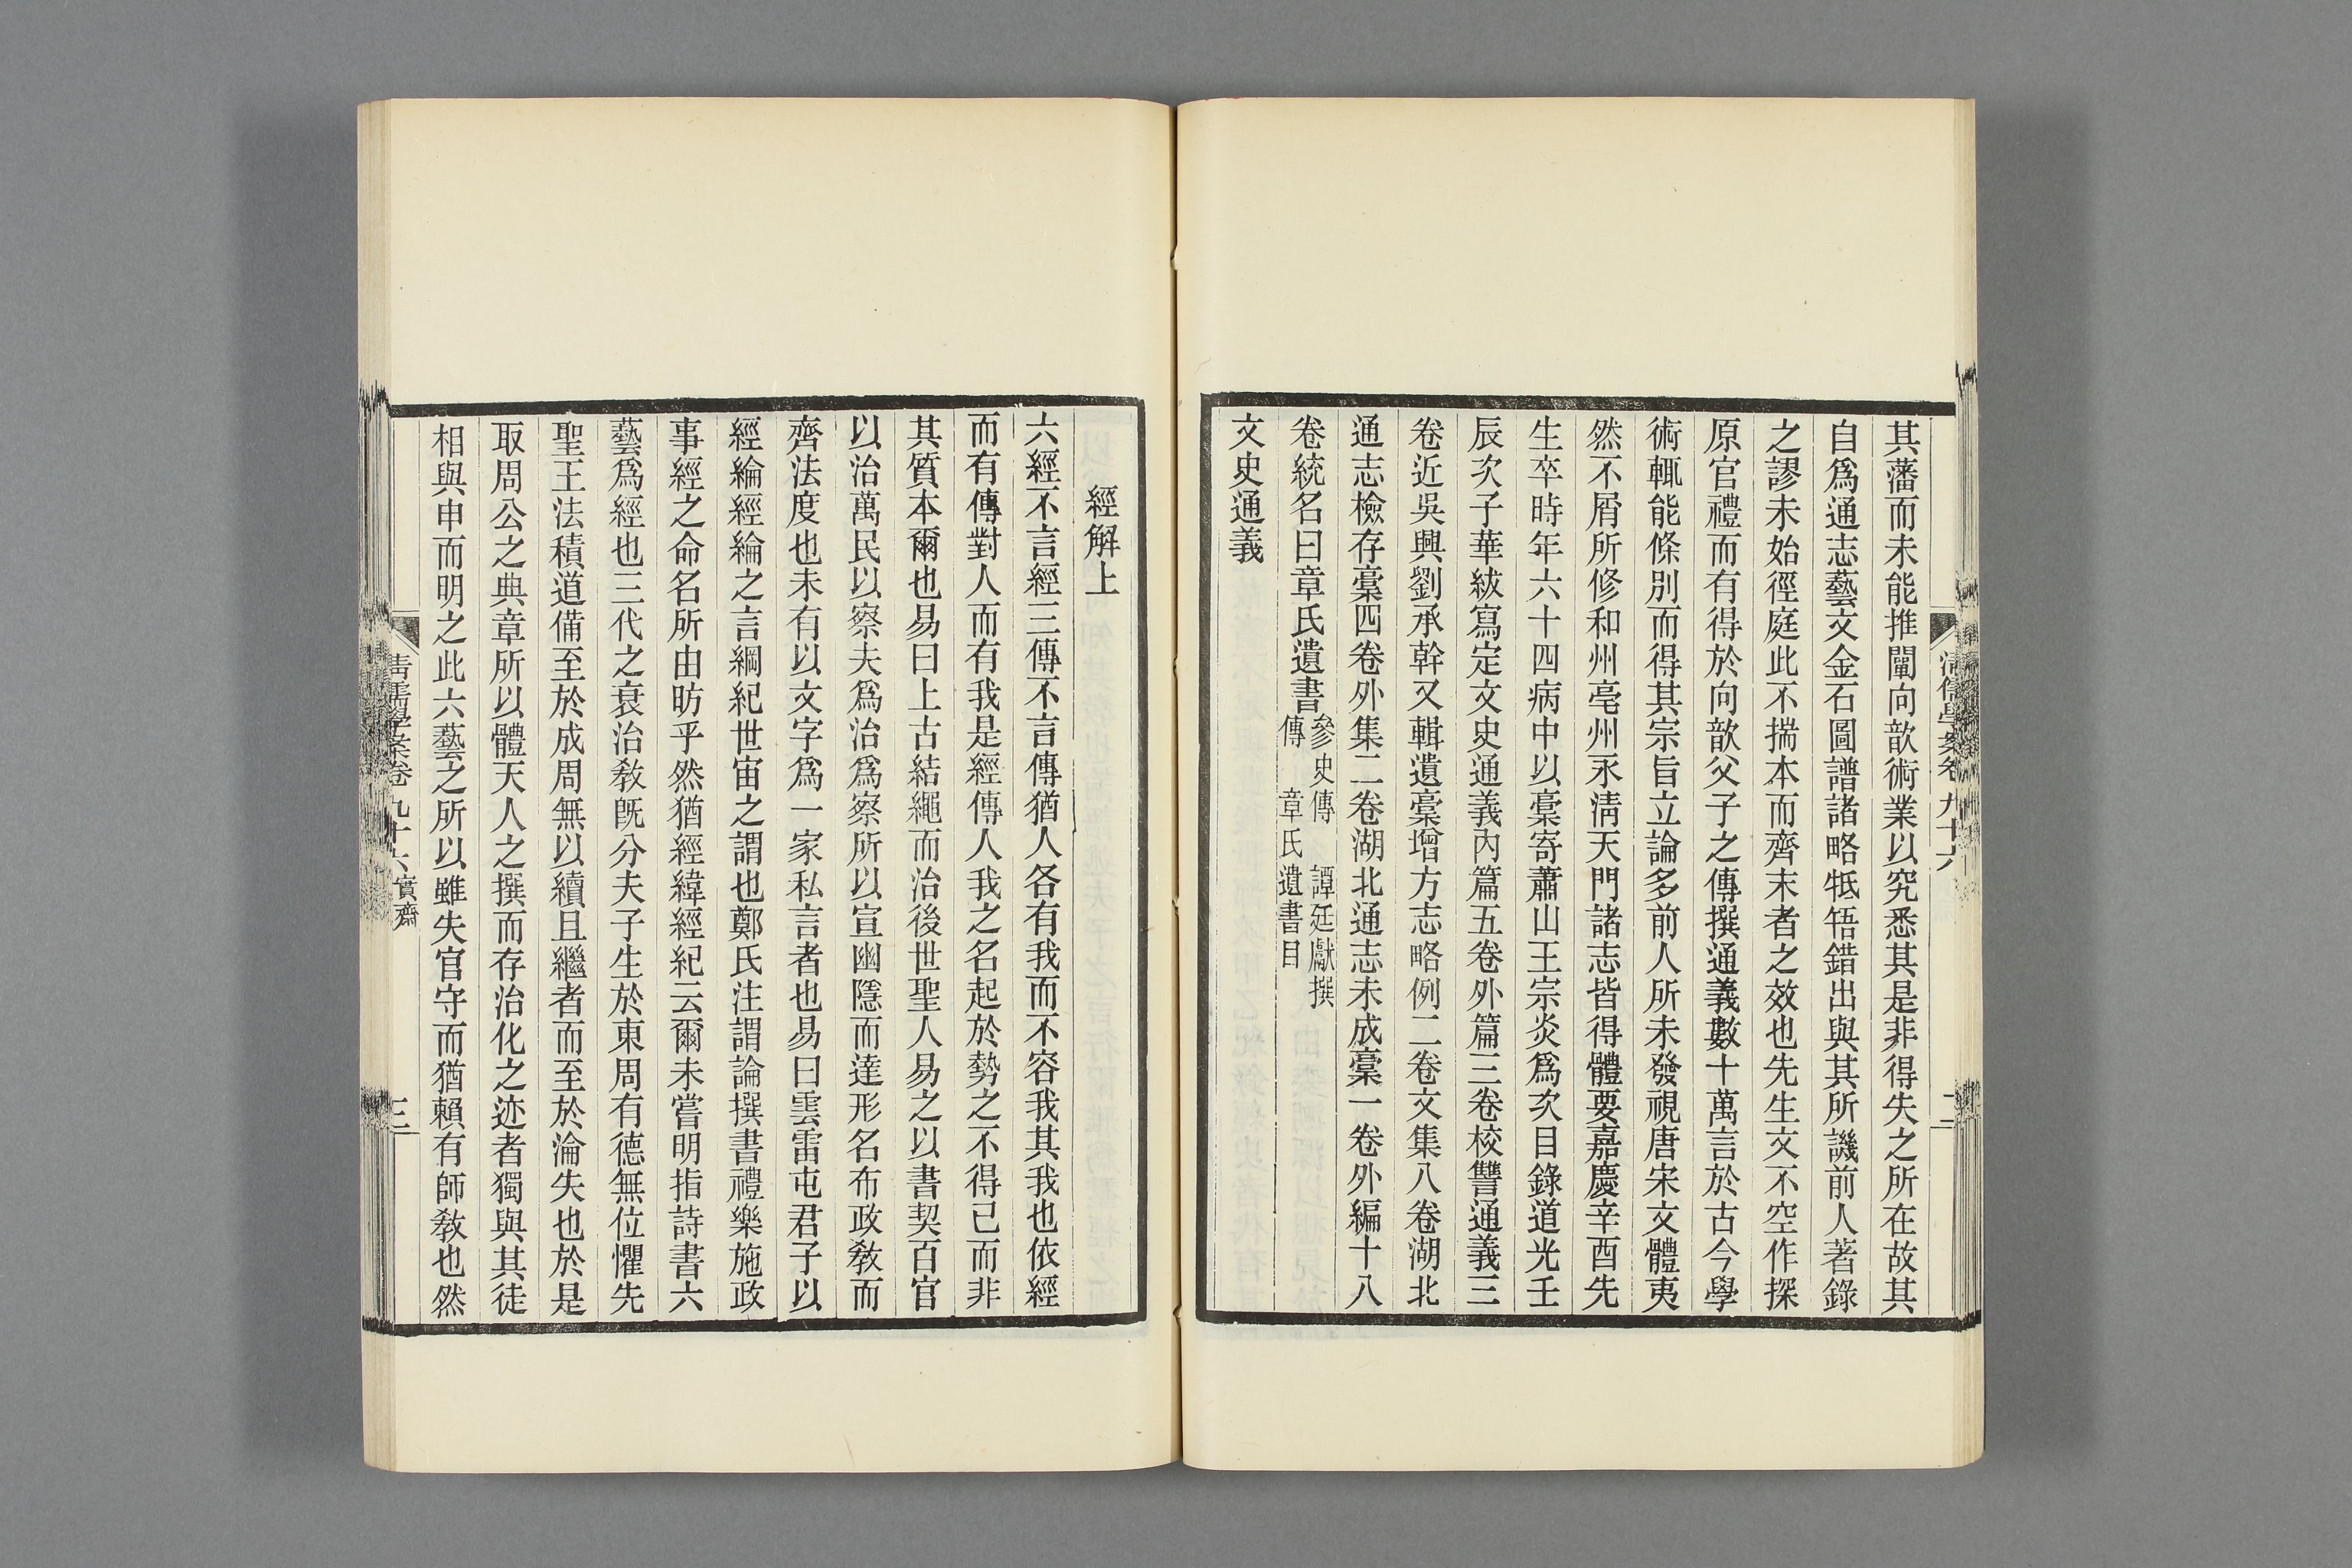 其藩而未能推闡向歆術業以究悉其是非得失之所在故其
自爲通志藝文金石圖譜諸略牴牾錯出與其所譏前人著錄
之謬未始徑庭此不揣本而齊末者之效也先生文不空作探
原官禮而有得於向歆父子之傳撰通義數十萬言於古今學
術輒能條別而得其宗旨立論多前人所未發視唐宋文體夷
然不屑所修和州亳州永淸天門諸志皆得體要嘉慶辛酉先
生卒時年六十四病中以稾寄蕭山王宗炎爲次目錄道光壬
辰次子華紱寫定文史通義內篇五卷外篇三卷校讐通義三
卷近吳興劉承幹又輯遺稾增方志略例二卷文集八卷湖北
通志檢存稾四卷外集二卷湖北通志未成稾一卷外編十八
卷統名曰章氏遺書 參史傳 譚廷獻撰
傳 章氏遺書目
文史通義
淸儒學案卷九十六
二
經解上
六經不言經三傳不言傳猶人各有我而不容我其我也依經
而有傳對人而有我是經傳人我之名起於勢之不得已而非
其質本爾也易曰上古結繩而治後世聖人易之以書契百官
以治萬民以察夫爲治爲察所以宣幽隱而達形名布政敎而
齊法度也未有以文字爲一家私言者也易曰雲雷屯君子以
經綸經綸之言綱紀世宙之謂也鄭氏注謂論撰書禮樂施政
事經之命名所由昉乎然猶經緯經紀云爾未嘗明指詩書六
藝爲經也三代之衰治敎旣分夫子生於東周有德無位懼先
聖王法積道備至於成周無以續且繼者而至於淪失也於是
取周公之典章所以體天人之撰而存治化之迹者獨與其徒
相與申而明之此六藝之所以雖失官守而猶賴有師敎也然
淸儒學案卷九十六 實齋
三